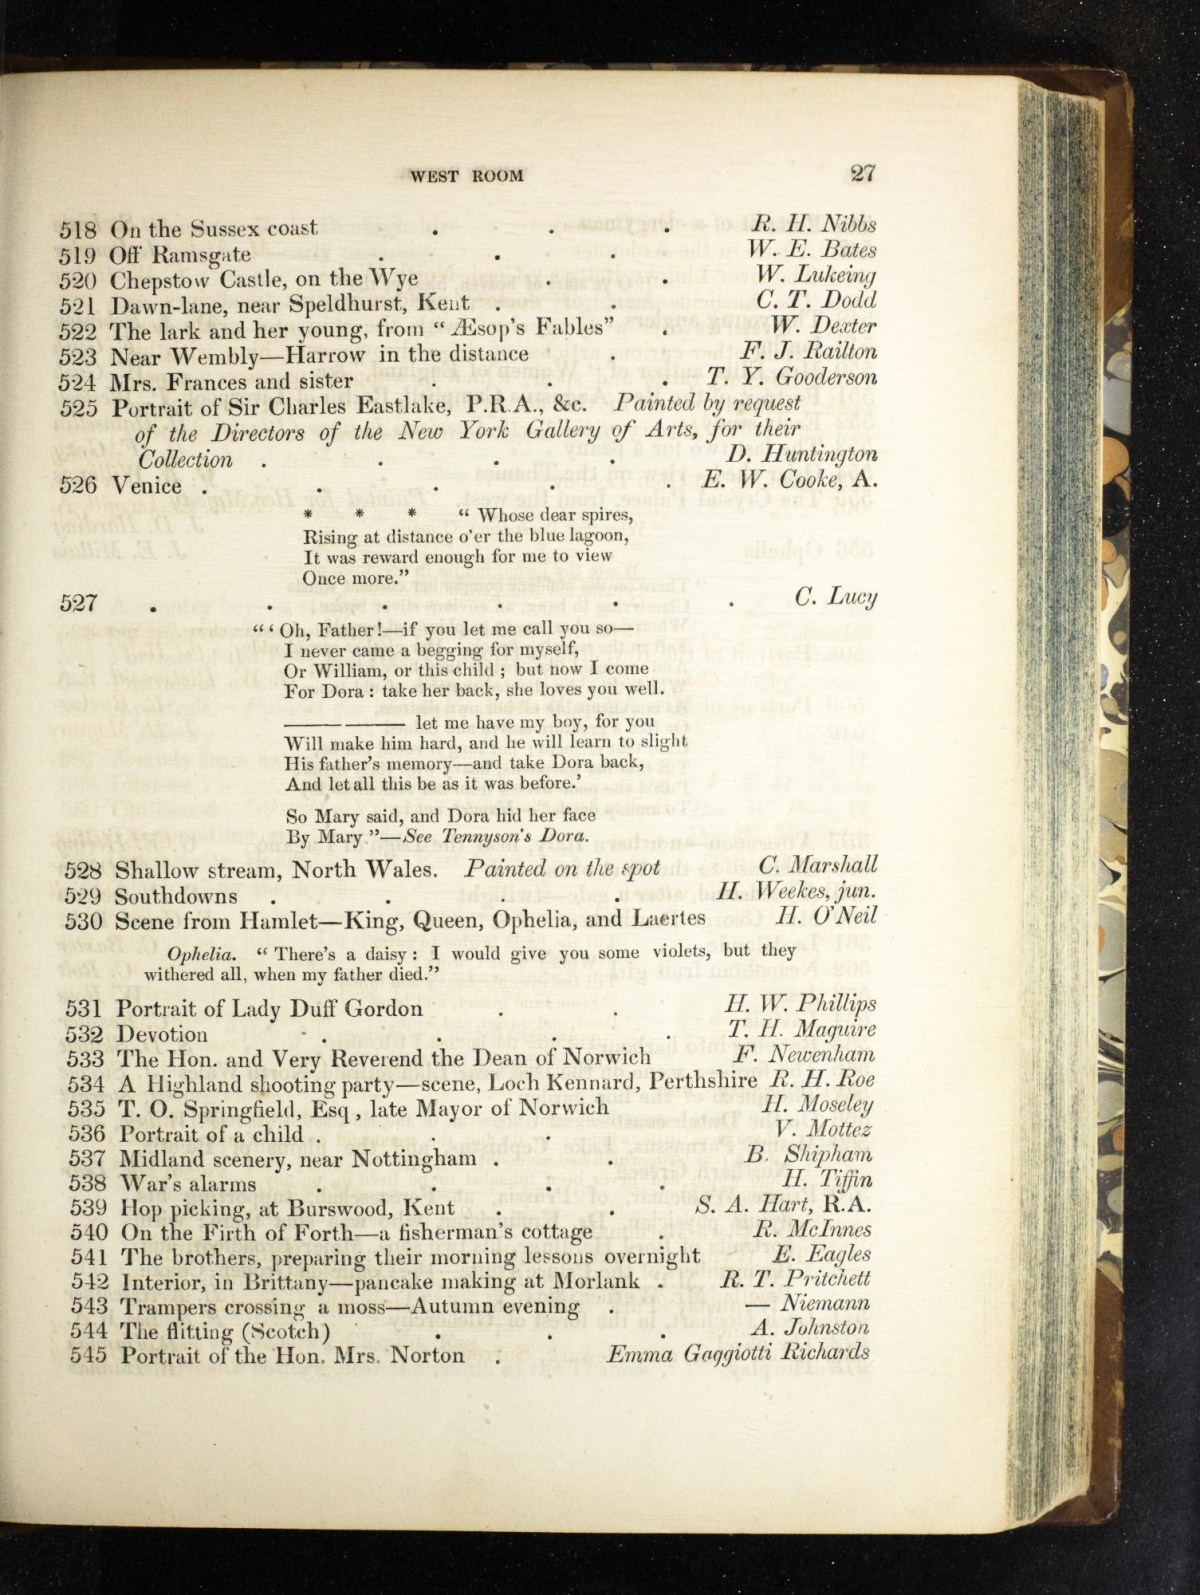 WEST ROOM 27
518 On the Sussex coast . . . R. H. Nibbs
519 Off Ramsgate . . . W. E. Bates
520 Chepstow Castle, on the Wye . . W. Lukeing
521 Dawn-lane, near Speldhurst, Kent . . C. T. Dodd
522 The lark and her young, from “ Æsop's Fables” . W. Dexter
523 Near Wembly—Harrow in the distance . F. J. Railton
524 Mrs. Frances and sister . . . T. Y. Gooderson
525 Portrait of Sir Charles Eastlake, P.R.A., &c. Painted by request
of the Directors of the New York Gallery of Arts, for their
Collection . . . . D. Huntington
526 Venice . . . . . E. W. Cooke, A.
* * * “ Whose dear spires,
Rising at distance o'er the blue lagoon,
It was reward enough for me to view
Once more.”
527 . . . . . . C. Lucy
“ ‘ Oh, Father!—if you let me call you so—
I never came a begging for myself,
Or William, or this child ; but now I come
For Dora : take her back, she loves you well.
——— ——— let me have my boy, for you
Will make him hard, and he will learn to slight
His father's memory—and take Dora back,
And let all this be as it was before.’
So Mary said, and Dora hid her face
By Mary ”—See Tennyson's Dora.
528 Shallow stream, North Wales. Painted on the spot C. Marshall
529 Southdowns . . . . H. Weekes, jun.
530 Scene from Hamlet—King, Queen, Ophelia, and Laertes H. O'Neil
Ophelia. “ There's a daisy : I would give you some violets, but they
withered all, when my father died.”
531 Portrait of Lady Duff Gordon . . H. W. Phillips
532 Devotion . . . . T. H. Maguire
533 The Hon. and Very Reverend the Dean of Norwich F. Newenham
534 A Highland shooting party—scene, Loch Kennard, Perthshire R. H. Roe
535 T. O. Springfield, Esq , late Mayor of Norwich H. Moseley
536 Portrait of a child . . . V. Mottez
537 Midland scenery, near Nottingham . . B. Shipham
538 War's alarms . . . . H. Tiffin
539 Hop picking, at Burswood, Kent . . S. A. Hart, R.A.
540 On the Firth of Forth—a fisherman's cottage . R. McInnes
541 The brothers, preparing their morning lessons overnight E. Eagles
542 Interior, in Brittany—pancake making at Morlank . R. T. Pritchett
543 Trampers crossing a moss—Autumn evening . — Niemann
544 The flitting (Scotch) . . . A. Johnston
545 Portrait of the Hon. Mrs. Norton . Emma Gaggiotti Richards